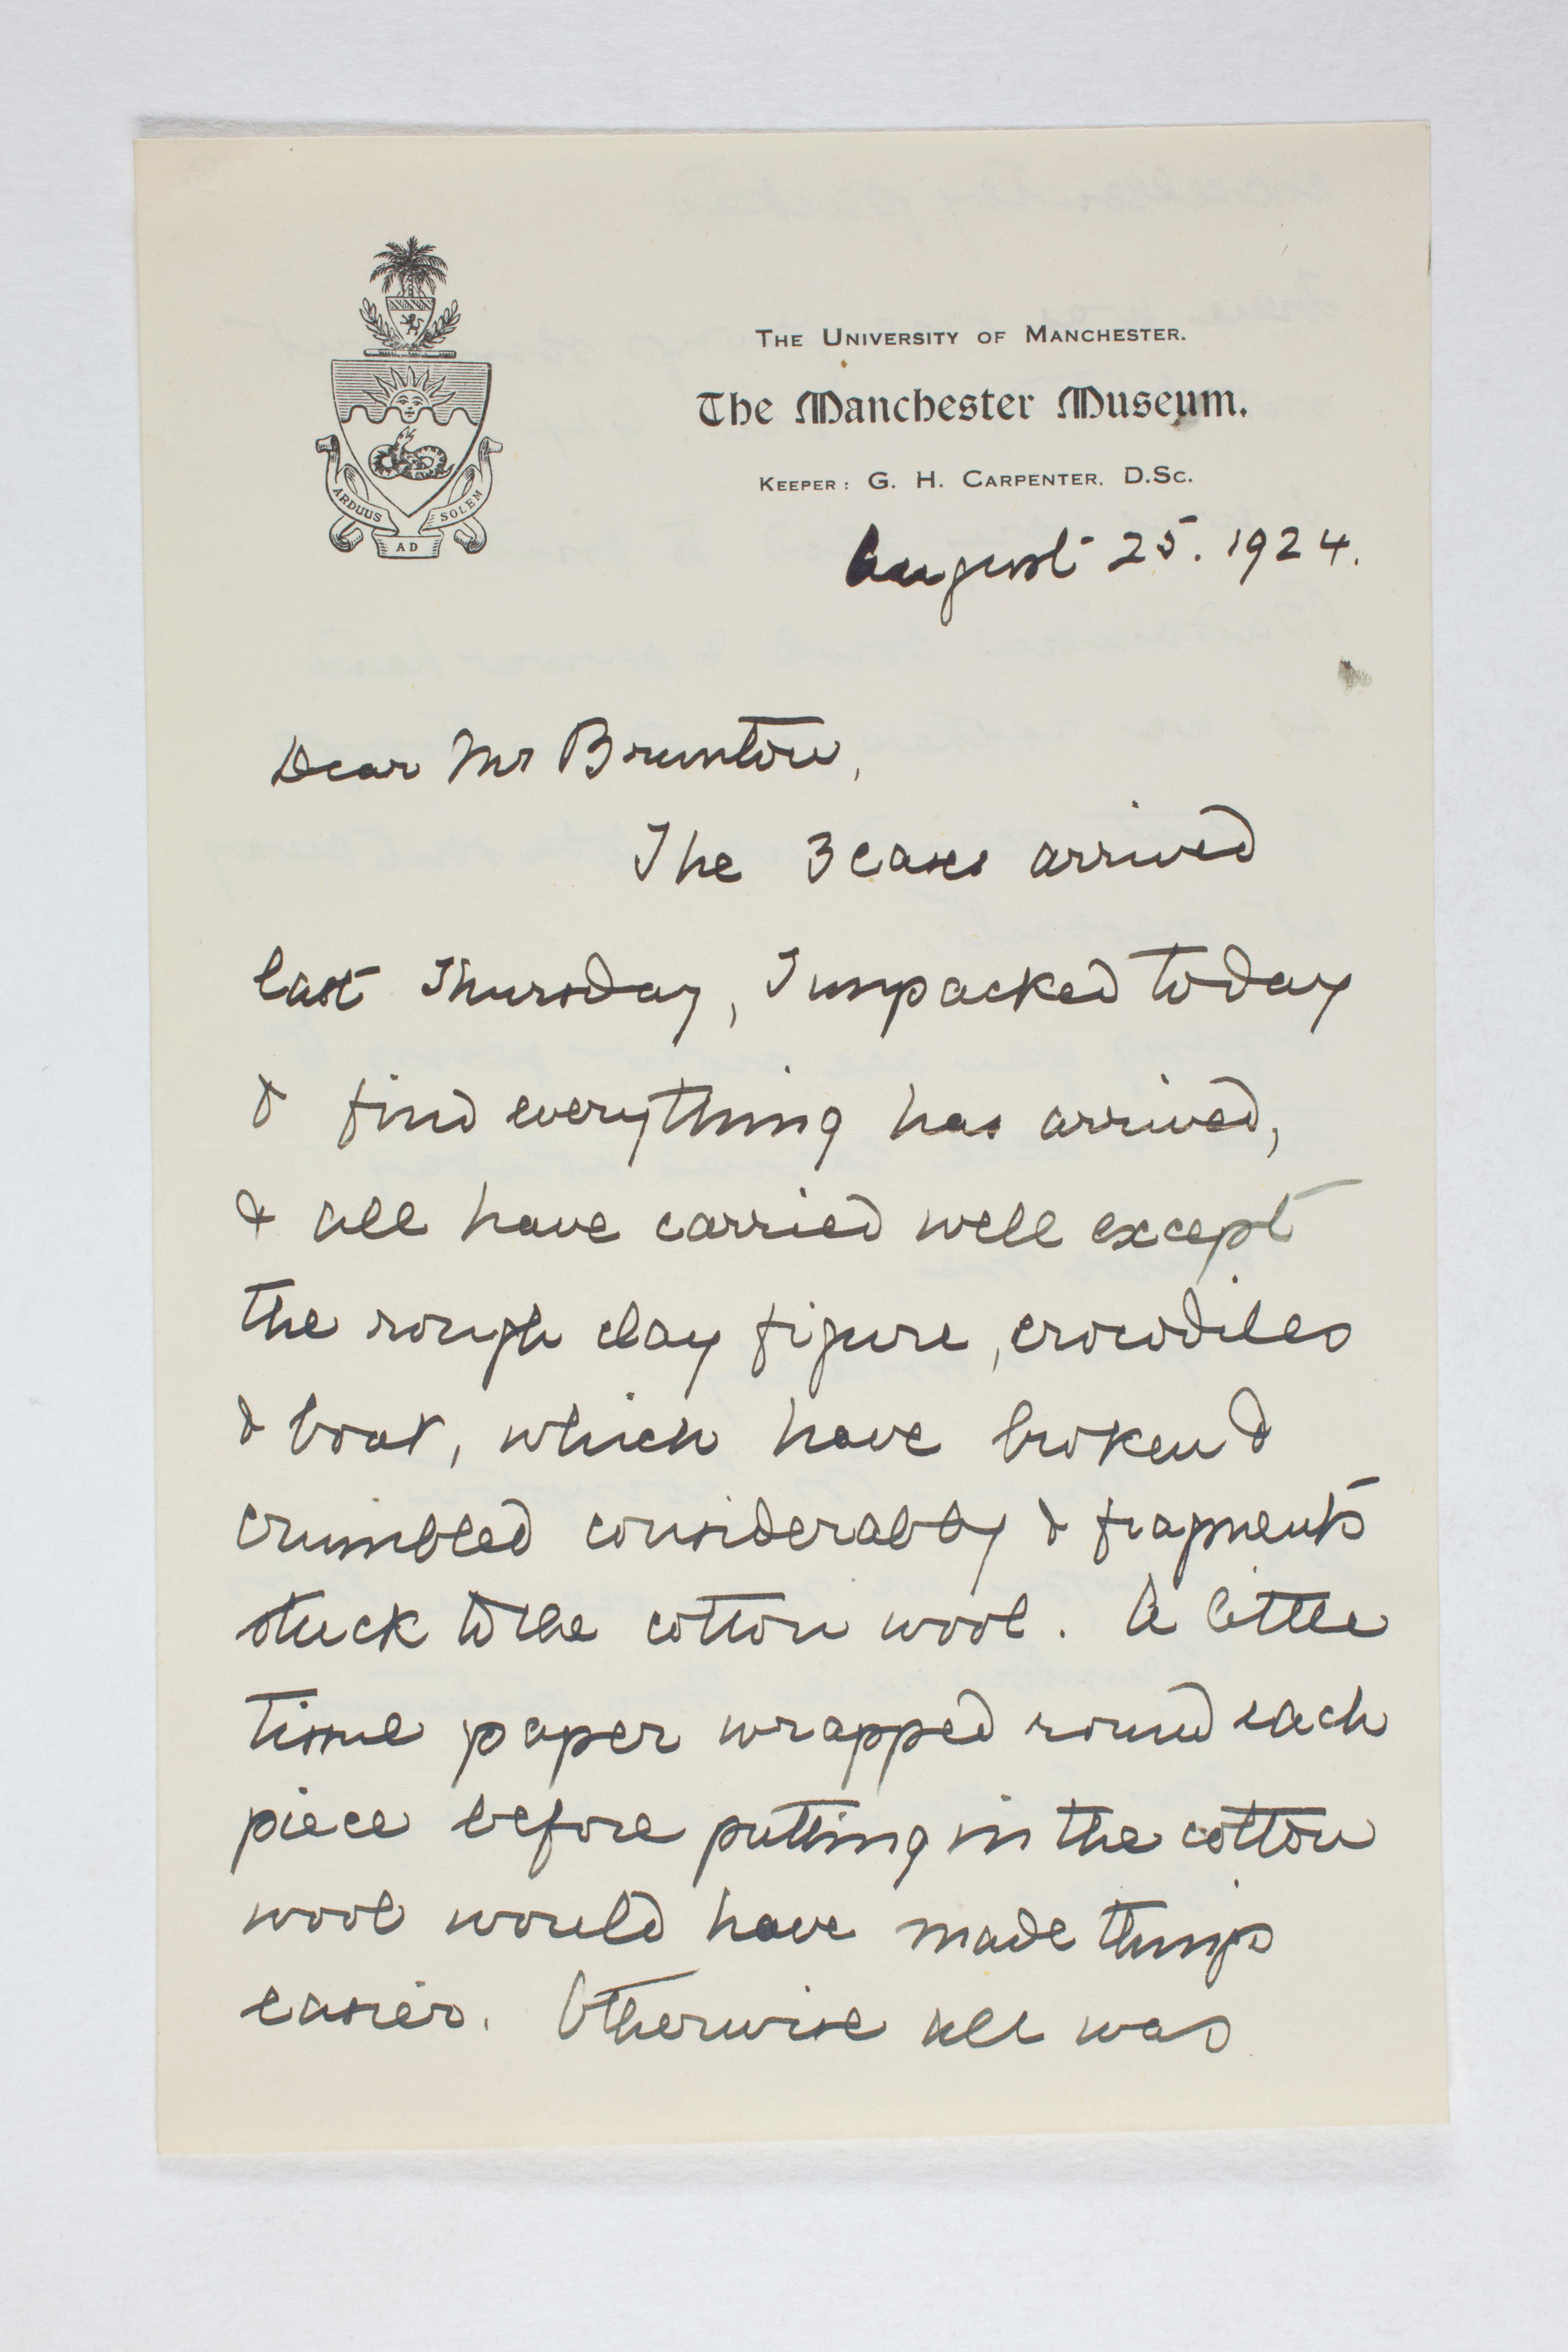 THE UNIVERSITY OF MANCHESTER.
The Manchester Museum.
KEEPER: G. H. CARPENTER, D.Sc.
ARDUUS AD SOLEM
August 25. 1924.
Dear Mr Brunton,
The 3 cases arrived
last Thursday, I unpacked today
& find everything has arrived,
& all have carried well except
the rough clay figure, crocodiles
& boat, which have broken &
crumbled considerably & fragments
stuck to the cotton wool. A little
tissue paper wrapped round each
piece before putting in the cotton
wool would have made things
easier. Otherwise all was